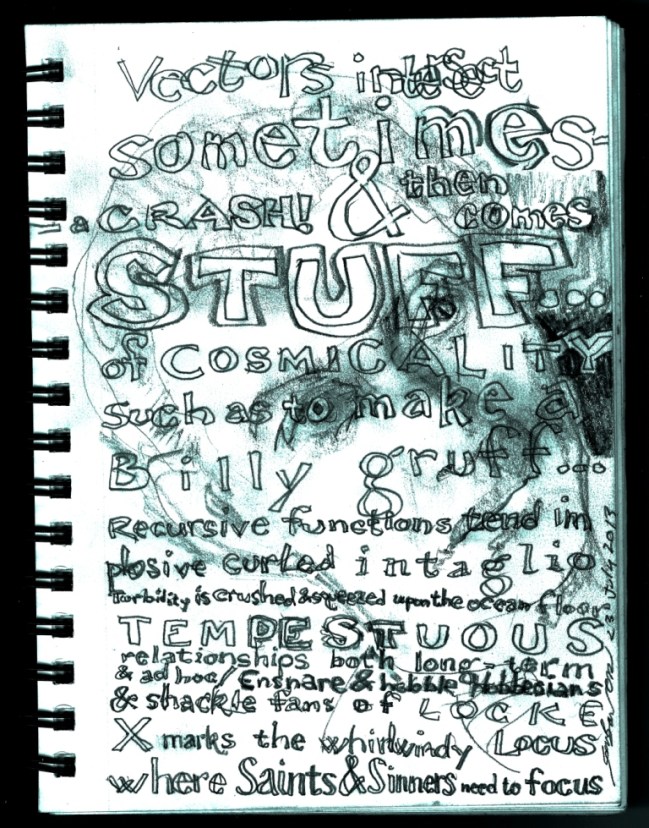 Vectors intersect
sometimes-
then
a CRASH! & comes
STUFF...
of COSMICALITY
such as to make a
Billy gruff...
Recursive functions tend im
plosive curled intaglio
Turbility is crushed & squeezed upon the ocean floor
TEMPESTUOUS
relationships both long-term
& ad hoc/ Ensnare & hobble Hobbesians
& shackle fans of LOCKE
X marks the whirlwindy Locus
where Saints & Sinners need to focus
July 2013